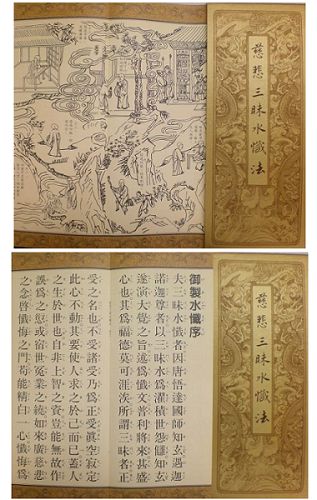 慈悲三昧水懺法
慈悲三昧水懺法
御製水懺序
夫三昧水懺者因唐悟達國師知玄遇迦
諾迦尊者以三昧水為濯積世怨讎知玄
遂演大覺之旨述為懺文普利將來其盛
心也其為福德莫可涯涘所謂三昧者正
受之也不受諸受乃為正受眞空寂定
此心不動其要使人求之於己而已蓋人
之生於世也自非上智之資豈能無故作
誤為之愆或宿世冤業之繞如來廣慈悲
之念啓懺悔之門苟能精白一心懺悔為